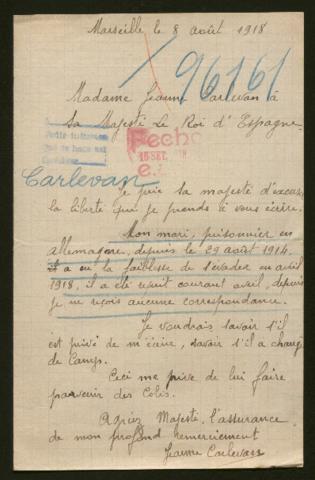 Marseille le 8 août 1918
96161
Madame Jeanne Carlevan à
Sa Majesté Le Roi d'Espagne.
Fecho
16 SET. 918
Carlevan
Je prie Sa majesté d'excuser
la liberté que je prends à vous écrire.
Mon mari, prisonnier en
allemagne, depuis le 29 août 1914.
il a eu la faiblesse de s'évader en avril
1918, il a été courant avril, depuis
je ne reçois aucune correspondance.
Je voudrais savoir s'il
est privé de m'écrire, savoir s'il a changé
de Camp.
Ceci me prive de lui faire
parvenir des Colis.
Agréez Majesté, l'assurance
de mon profond remerciement
Jeanne Carlevan